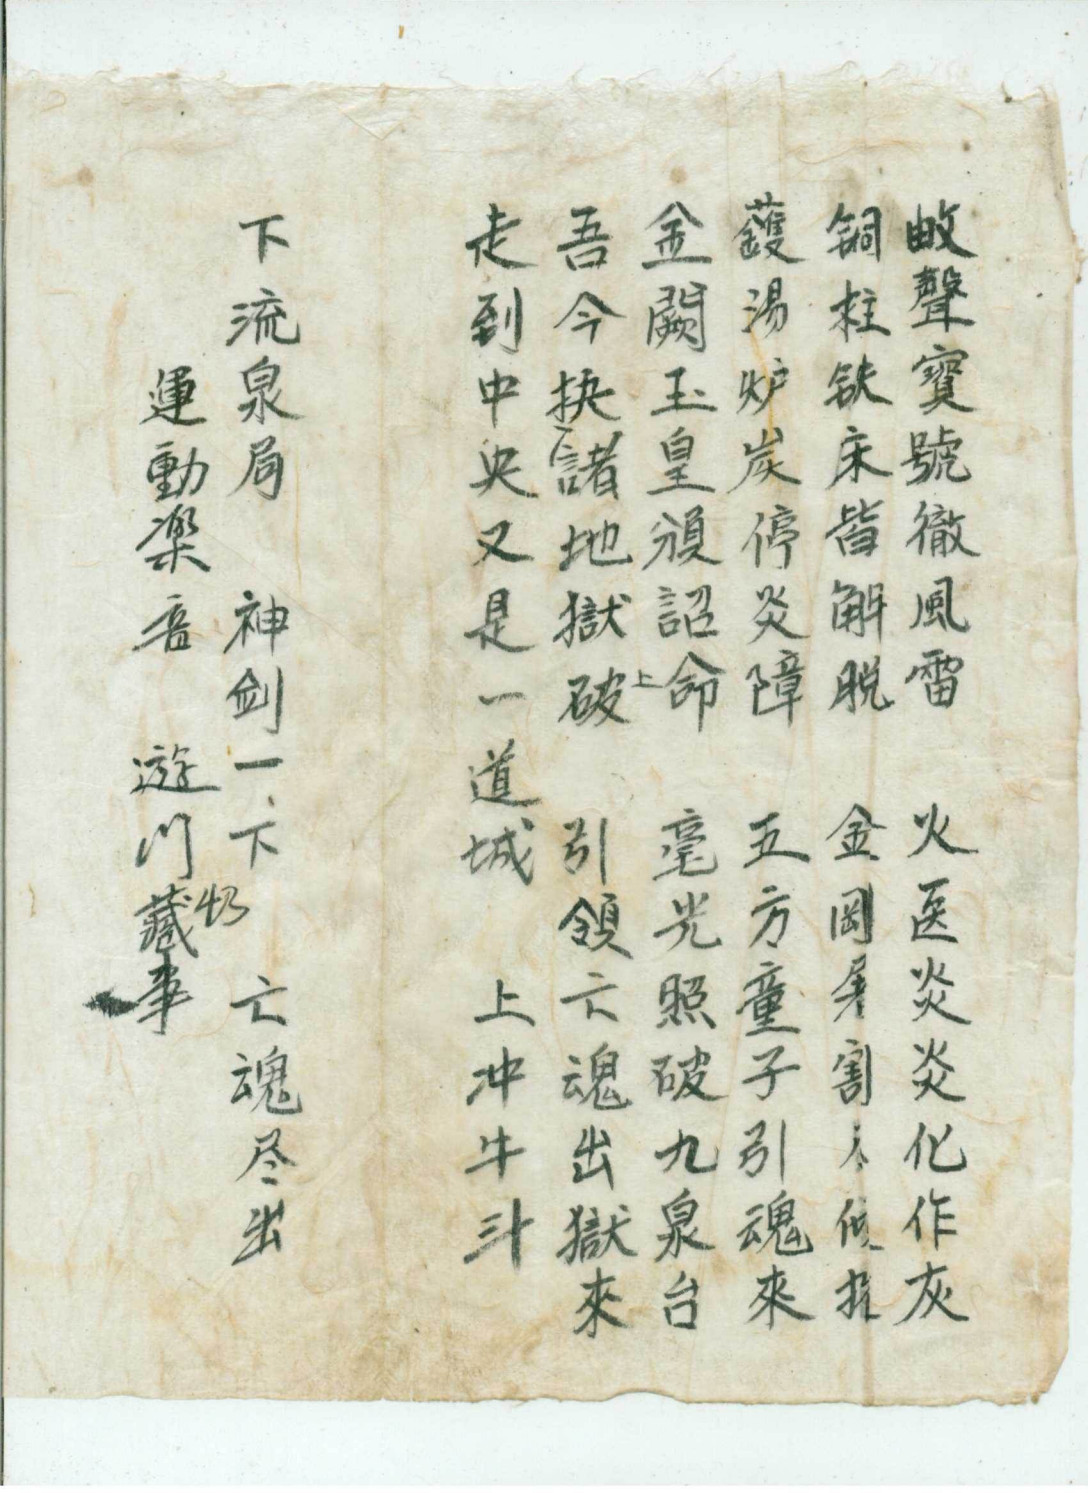 畝聲寳號徹風雷　火医炎炎化作灰
銅柱鉄床皆解脱　金岡屠割尽傾
鑊湯炉炭停炎障　五方童子引魂來
金闕玉皇頒詔命　毫光照破九泉台
上
吾今抉諸地獄破　引領亡魂出獄來
走到中央又是一道城　上冲牛斗
下流泉局　神剑一下　亡魂尽出
運動楽音　遊川藏事